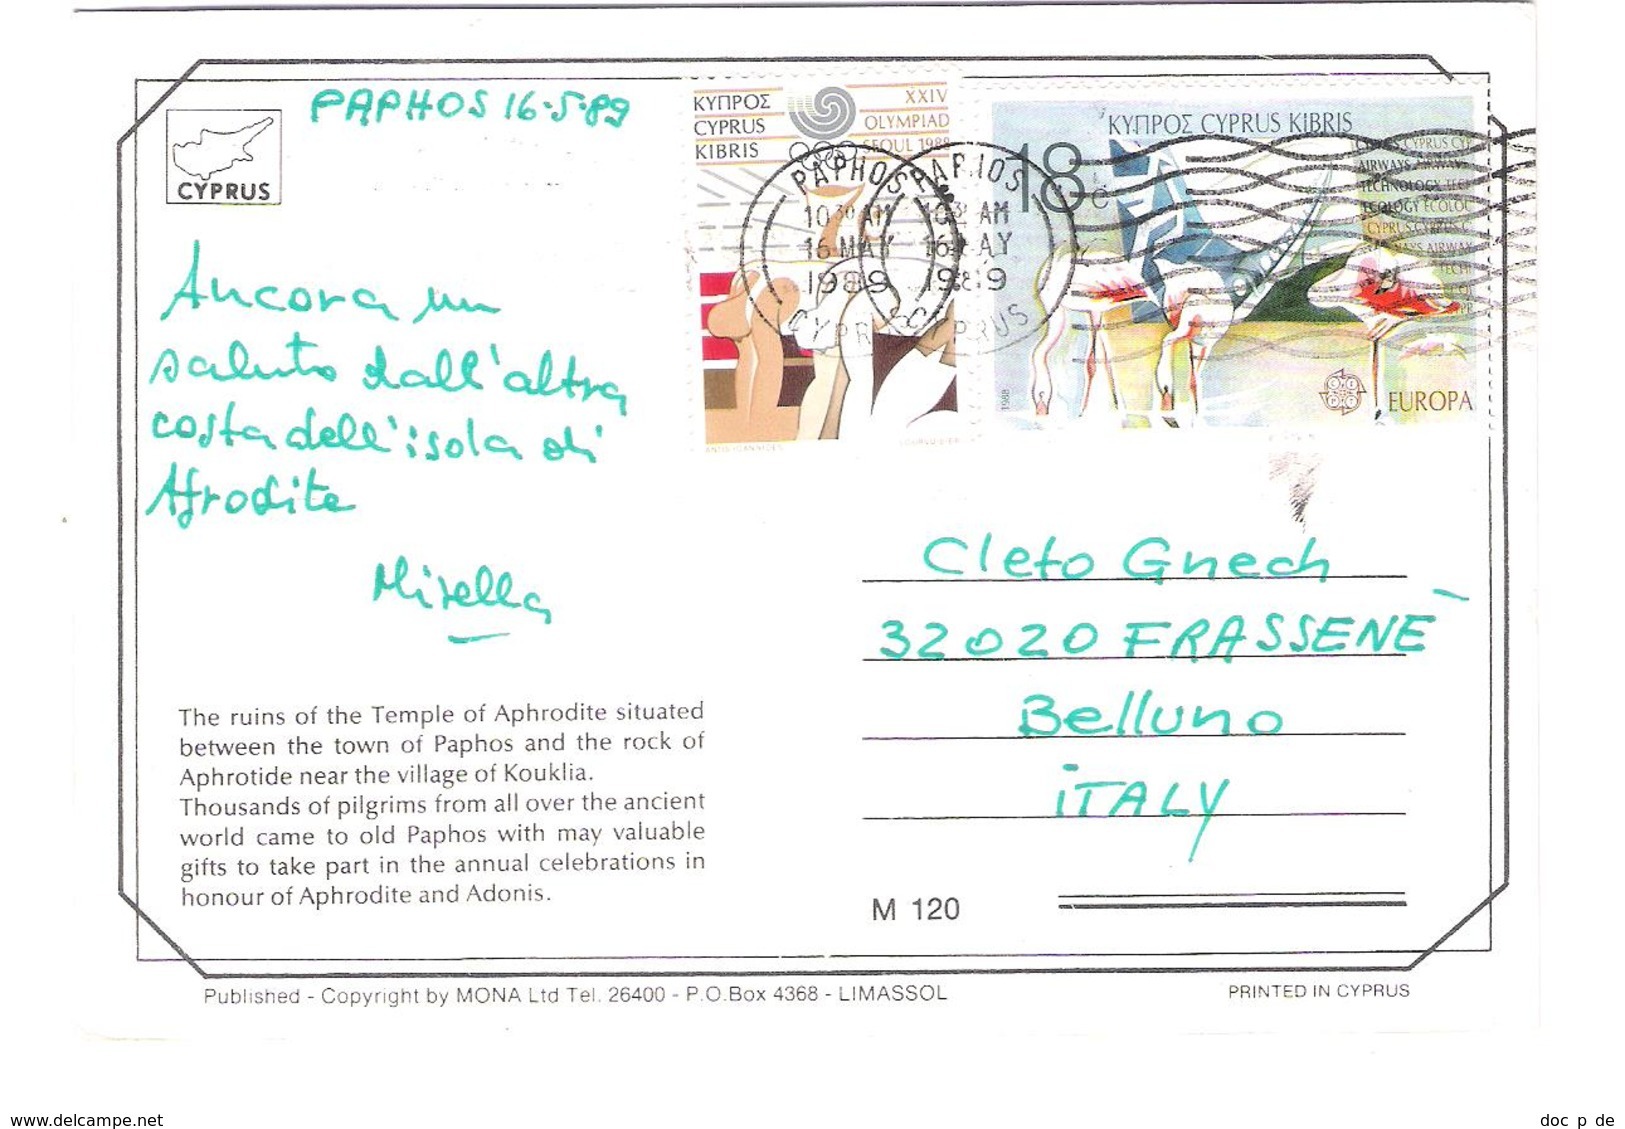 PAPHOS 16·5·89
CYPRUS
ΚΥΠΡΟΣ
CYPRUS
KIBRIS
XXIV
OLYMPIAD
SEOUL 1988
ΚΥΠΡΟΣ CYPRUS KIBRIS
18
c
AIRWAYS AIRWAY
TECHNOLOGY TECH
ECOLOGY ECOLOG
CYPRUS CYPRUS C
1988
EUROPA
PAPHOS
10 30 AM
16 MAY
1989
CYPRUS
PAPHOS
10 30 AM
16 MAY
1989
CYPRUS
Ancora un
saluto dall'altra
costa dell'isola di
Afrodite
Mirella
The ruins of the Temple of Aphrodite situated
between the town of Paphos and the rock of
Aphrotide near the village of Kouklia.
Thousands of pilgrims from all over the ancient
world came to old Paphos with may valuable
gifts to take part in the annual celebrations in
honour of Aphrodite and Adonis.
Cleto Gnech
32020 FRASSENE`
Belluno
ITALY
M 120
Published - Copyright by MONA Ltd Tel. 26400 - P.O.Box 4368 - LIMASSOL
PRINTED IN CYPRUS
www.delcampe.net
doc_p_de